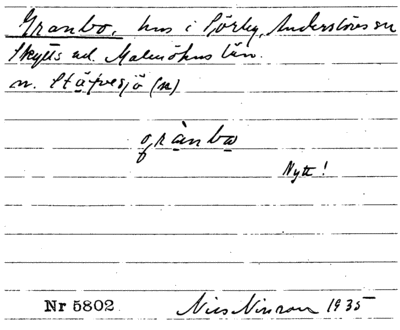 Granbo, hus i Sörby, Anderslövs sn
Skytts hd. Malmöhus län.
n. Stävesjö (n)
grànbω
Nytt!
Nr 5802 Nils Ninron 1935